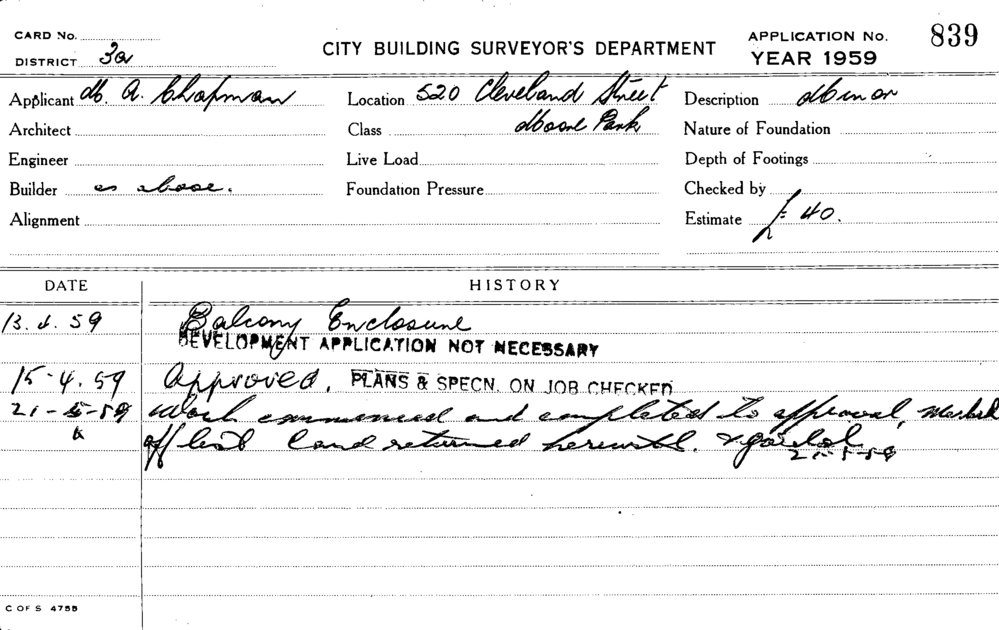 CARD No.
DISTRICT 3a
CITY BUILDING SURVEYOR'S DEPARTMENT
APPLICATION No. 839
YEAR 1959
Applicant M. A. Chapman
Location 520 Cleveland Street
Description Minor
Architect
Class Moore Park
Nature of Foundation
Engineer
Live Load
Depth of Footings
Builder as above.
Foundation Pressure
Checked by
Alignment
Estimate £40.
DATE
HISTORY
13.4.59 Balcony Enclosure
DEVELOPMENT APPLICATION NOT NECESSARY
15-4.59 Approved. PLANS & SPECN. ON JOB CHECKED
21-5-59 Work commenced and completed to approval, marked
off list card returned herewith. 21-5-59
C OF S 475B